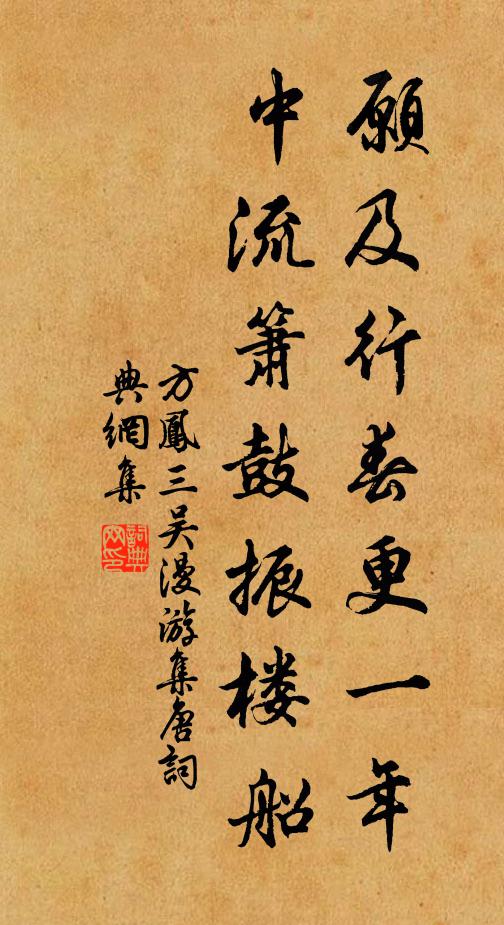 願及行春更一年
中流簫鼓振楼船
方鳳三吴漫游集唐詞
典網集
詞典
网印